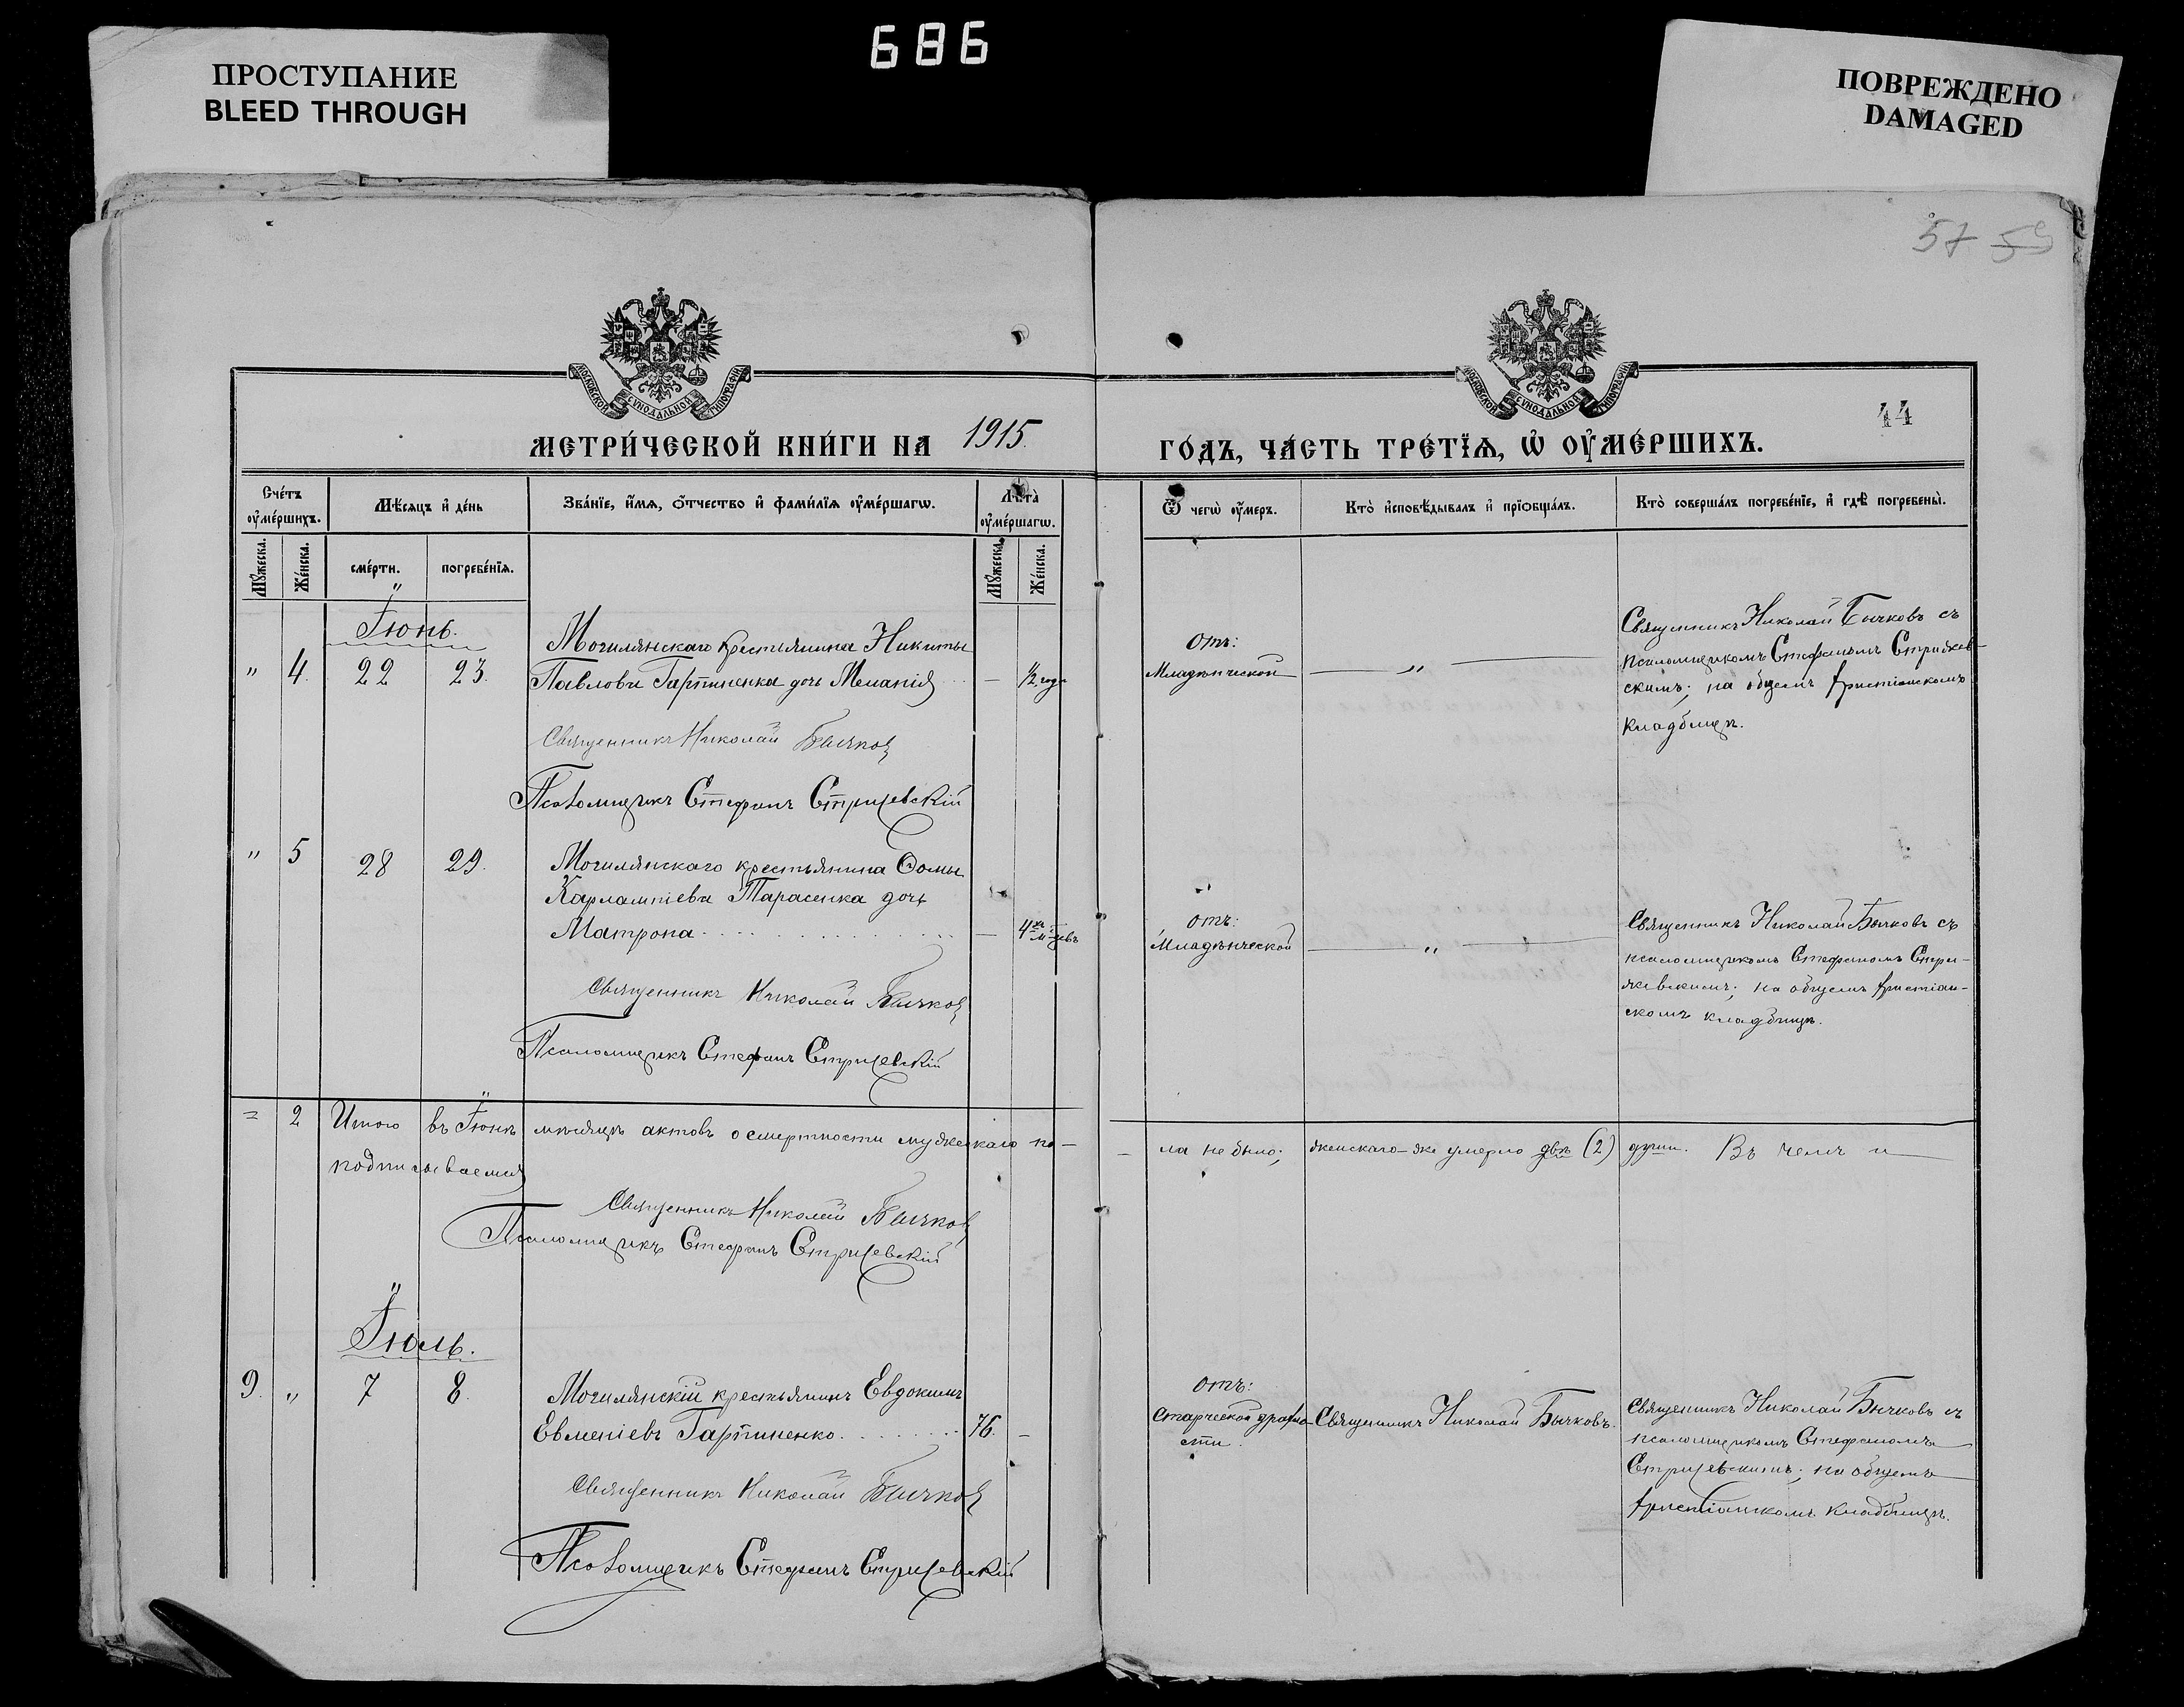 686
ПРОСТУПАНИЕ
BLEED THROUGH
ПОВРЕЖДЕНО
DAMAGED
57 59
МОСКОВСКОЙ СУНОДАЛЬНОЙ ТИПОГРАФІИ
МОСКОВСКОЙ СУНОДАЛЬНОЙ ТИПОГРАФІИ
44
МЕТРИ́ЧЕСКОЙ КНИ́ГИ НА 1915.
ГО́ДЪ, ЧА́СТЬ ТРЕ́ТІѦ, Ѡ҆ ОУ҆МЕ́РШИХЪ.
Сче́тъ оу҆ме́ршихъ.
Мѣ́сяцъ и҆ де́нь
Зва́нїе, и҆́мѧ, ѻ҆́тчество и҆ фами́лїѧ оу҆ме́ршагѡ.
Лѣ̑та̀ оу҆ме́ршагѡ.
Ѿ чегѡ̀ оу҆́меръ.
Кто̀ и҆сповѣ́дывалъ и҆ прїѻбща́лъ.
Кто̀ соверша́лъ погребе́нїе, и҆ гдѣ̀ погребены̀.
Мꙋ́жеска.
Же́нска.
сме́рти.
погребе́нїѧ.
Мꙋ́жеска.
Же́нска.
Іюнь.
" 4. 22 23.
Могилянскаго крестьянина Никиты
Павлова Гарпиненка дочь Меланія - ½ года
Священникъ Николай Бычковъ
Псаломщикъ Стефанъ Стрижевскій
Отъ:
Младенческой "
Священникъ Николай Бычковъ съ
псаломщикомъ Стефаномъ Стрижев-
скимъ; на общемъ христіанскомъ
кладбищѣ.
" 5 28 29.
Могилянскаго крестьянина Ѳомы
Харлампіева Тарасенка дочь
Матрона - 4хъ м-цевъ
Священникъ Николай Бычковъ
Псаломщикъ Стефанъ Стрижевскій
Отъ:
Младенческой "
Священникъ Николай Бычковъ съ
псаломщикомъ Стефаномъ Стри-
жевскимъ; на общемъ христіан-
скомъ кладбищѣ.
= 2 Итого въ Іюнѣ мѣсяцѣ актовъ о смертности мужескаго по-
- ла не было; женскаго-же умерло двѣ (2) души. Въ чемъ и
подписываемся
Священникъ Николай Бычковъ
Псаломщикъ Стефанъ Стрижевскій
Іюль.
9. " 7 8.
Могилянскій крестьянинъ Евдокимъ
Евменіевъ Гарпиненко 76. -
Священникъ Николай Бычковъ
Псаломщикъ Стефанъ Стрижевскій
Отъ:
Старческой дряхло-
сти.
Священникъ Николай Бычковъ.
Священникъ Николай Бычковъ съ
псаломщикомъ Стефаномъ
Стрижевскимъ; на общемъ
христіанскомъ кладбищѣ.